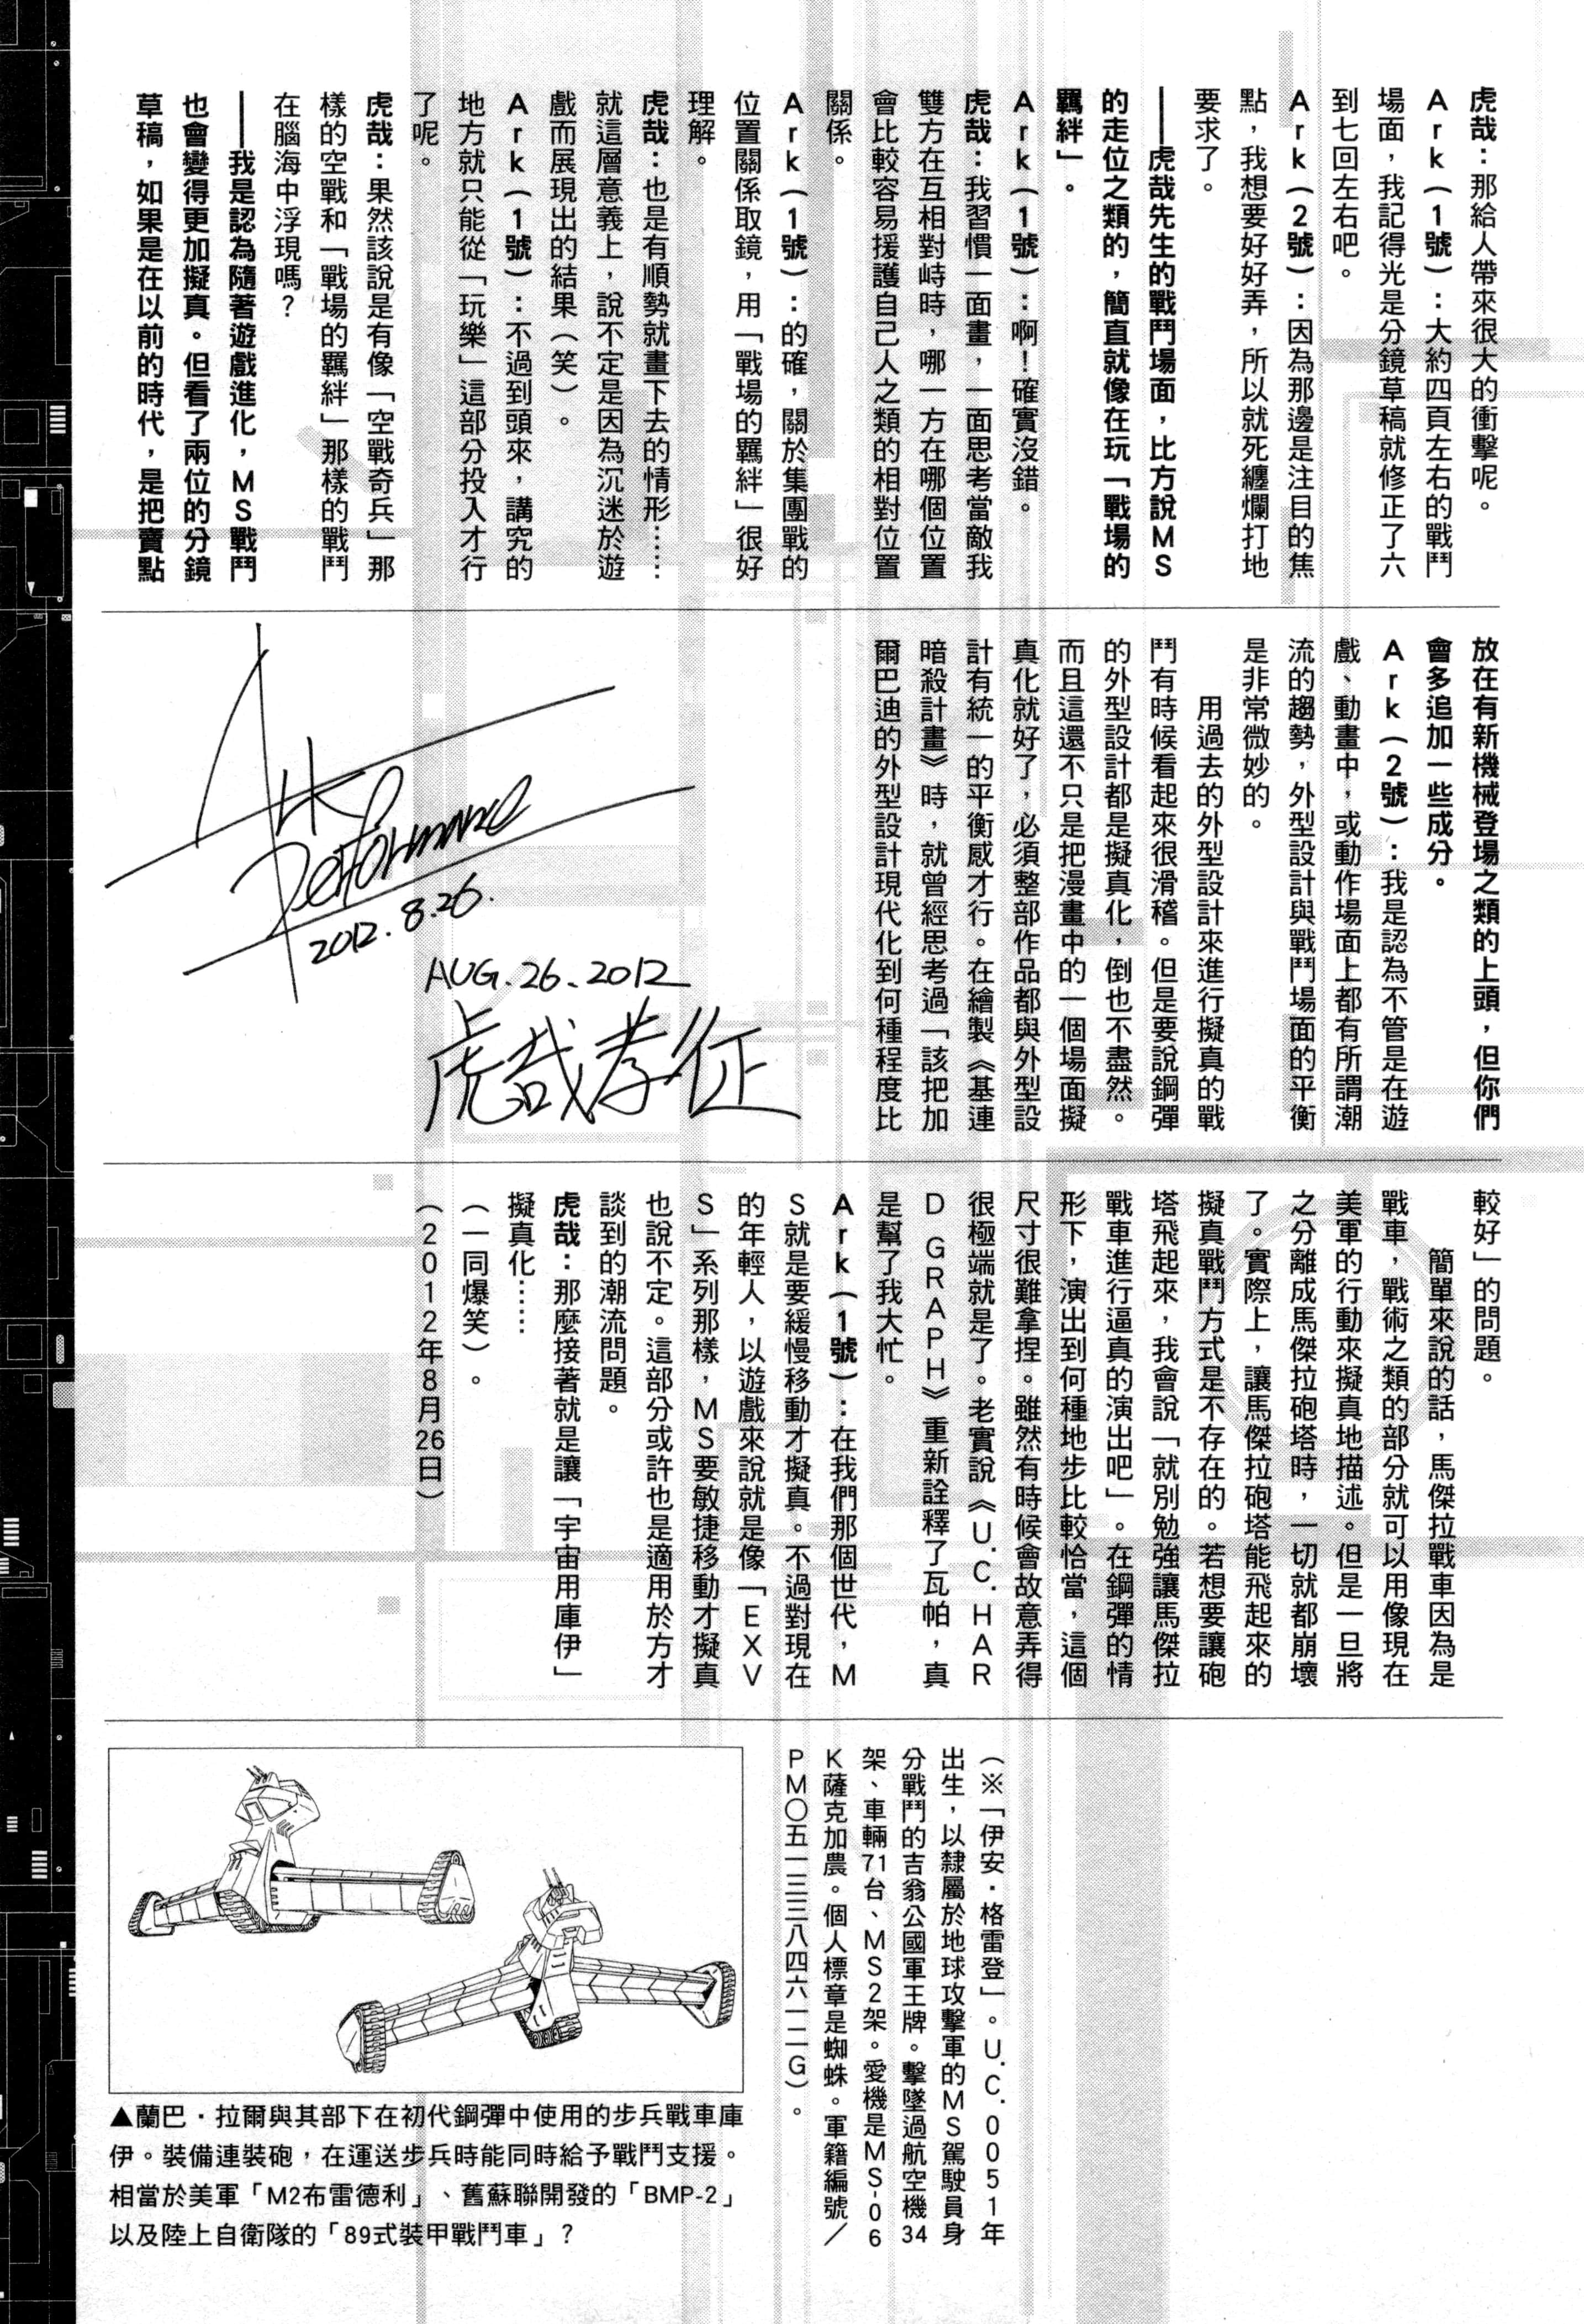 虎哉：那給人帶來很大的衝擊呢。
Ark（1號）：大約四頁左右的戰鬥
場面，我記得光是分鏡草稿就修正了六
到七回左右吧。
Ark（2號）：因為那邊是注目的焦
點，我想要好好弄，所以就死纏爛打地
要求了。
——虎哉先生的戰鬥場面，比方說MS
的走位之類的，簡直就像在玩「戰場的
羈絆」。
Ark（1號）：啊！確實沒錯。
虎哉：我習慣一面畫，一面思考當敵我
雙方在互相對峙時，哪一方在哪個位置
會比較容易援護自己人之類的相對位置
關係。
Ark（1號）：的確，關於集團戰的
位置關係取鏡，用「戰場的羈絆」很好
理解。
虎哉：也是有順勢就畫下去的情形……
就這層意義上，說不定是因為沉迷於遊
戲而展現出的結果（笑）。
Ark（1號）：不過到頭來，講究的
地方就只能從「玩樂」這部分投入才行
了呢。
虎哉：果然該說是有像「空戰奇兵」那
樣的空戰和「戰場的羈絆」那樣的戰鬥
在腦海中浮現嗎？
——我是認為隨著遊戲進化，MS戰鬥
也會變得更加擬真。但看了兩位的分鏡
草稿，如果是在以前的時代，是把賣點
放在有新機械登場之類的上頭，但你們
會多追加一些成分。
Ark（2號）：我是認為不管是在遊
戲、動畫中，或動作場面上都有所謂潮
流的趨勢，外型設計與戰鬥場面的平衡
是非常微妙的。
用過去的外型設計來進行擬真的戰
鬥有時候看起來很滑稽。但是要說鋼彈
的外型設計都是擬真化，倒也不盡然。
而且這還不只是把漫畫中的一個場面擬
真化就好了，必須整部作品都與外型設
計有統一的平衡感才行。在繪製《基連
暗殺計畫》時，就曾經思考過「該把加
爾巴迪的外型設計現代化到何種程度比
Ark
Performance
2012.8.26.
AUG.26.2012
虎哉孝征
較好」的問題。
簡單來說的話，馬傑拉戰車因為是
戰車，戰術之類的部分就可以用像現在
美軍的行動來擬真地描述。但是一旦將
之分離成馬傑拉砲塔時，一切就都崩壞
了。實際上，讓馬傑拉砲塔能飛起來的
擬真戰鬥方式是不存在的。若想要讓砲
塔飛起來，我會說「就別勉強讓馬傑拉
戰車進行逼真的演出吧」。在鋼彈的情
形下，演出到何種地步比較恰當，這個
尺寸很難拿捏。雖然有時候會故意弄得
很極端就是了。老實說《U.C.HAR
D GRAPH》重新詮釋了瓦帕，真
是幫了我大忙。
Ark（1號）：在我們那個世代，M
S就是要緩慢移動才擬真。不過對現在
的年輕人，以遊戲來說就是像「EXV
S」系列那樣，MS要敏捷移動才擬真
也說不定。這部分或許也是適用於方才
談到的潮流問題。
虎哉：那麼接著就是讓「宇宙用庫伊」
擬真化……
（一同爆笑）。
（2012年8月26日）
（※「伊安·格雷登」。U.C.0051年
出生，以隸屬於地球攻擊軍的MS駕駛員身
分戰鬥的吉翁公國軍王牌。擊墜過航空機34
架、車輛71台、MS2架。愛機是MS-06
K薩克加農。個人標章是蜘蛛。軍籍編號／
PM〇五一三三八四六一二G）。
▲蘭巴·拉爾與其部下在初代鋼彈中使用的步兵戰車庫
伊。裝備連裝砲，在運送步兵時能同時給予戰鬥支援。
相當於美軍「M2布雷德利」、舊蘇聯開發的「BMP-2」
以及陸上自衛隊的「89式裝甲戰鬥車」？